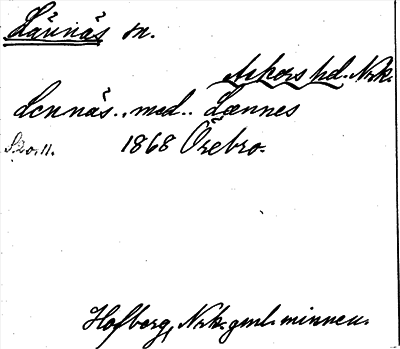 Lännäs sn.
Askers hd. Nrk.
Lennäs.. med.. Lænnes
S. 20. 11. 1868 Örebro.
Hofberg, Nrk. gml. minnen.